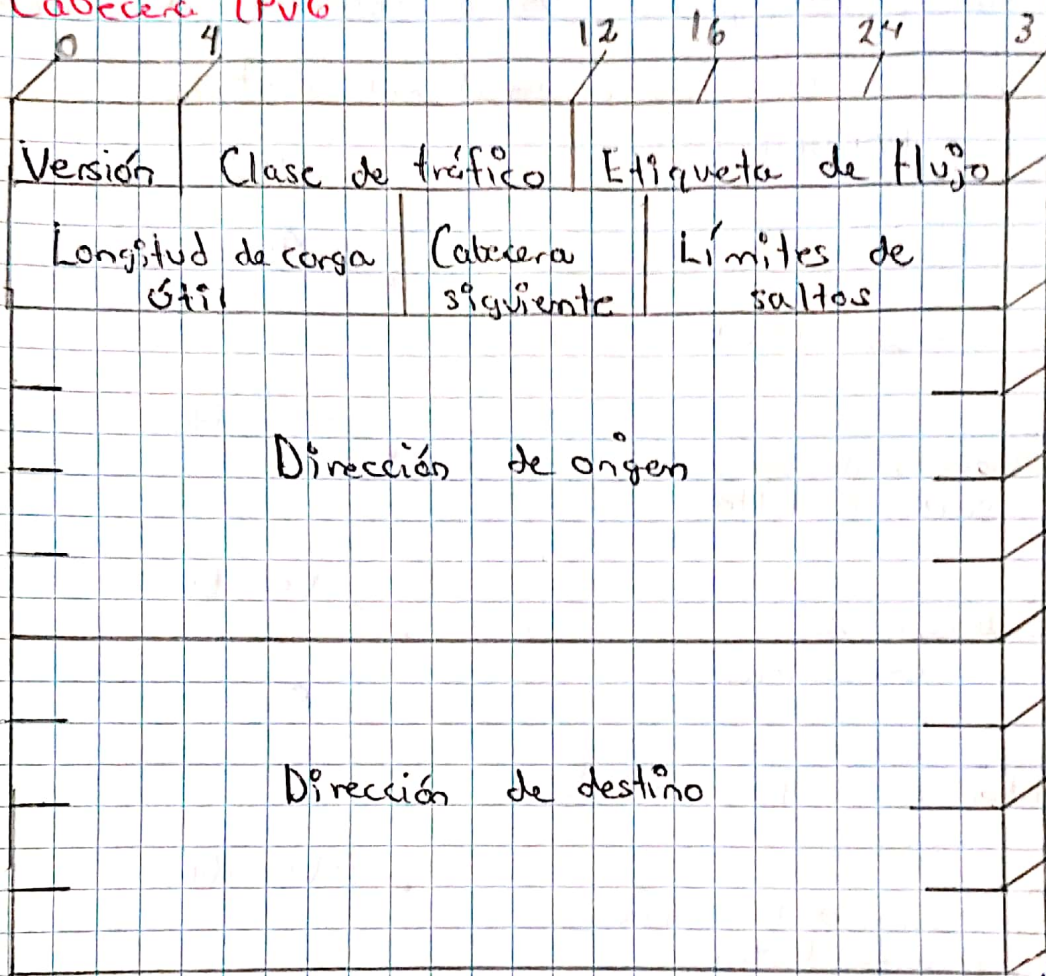 Cabecera IPv6
0 4 12 16 24 3
Versión Clase de tráfico Etiqueta de flujo
Longitud de carga Cabecera Límites de
útil siguiente saltos
Dirección de origen
Dirección de destino